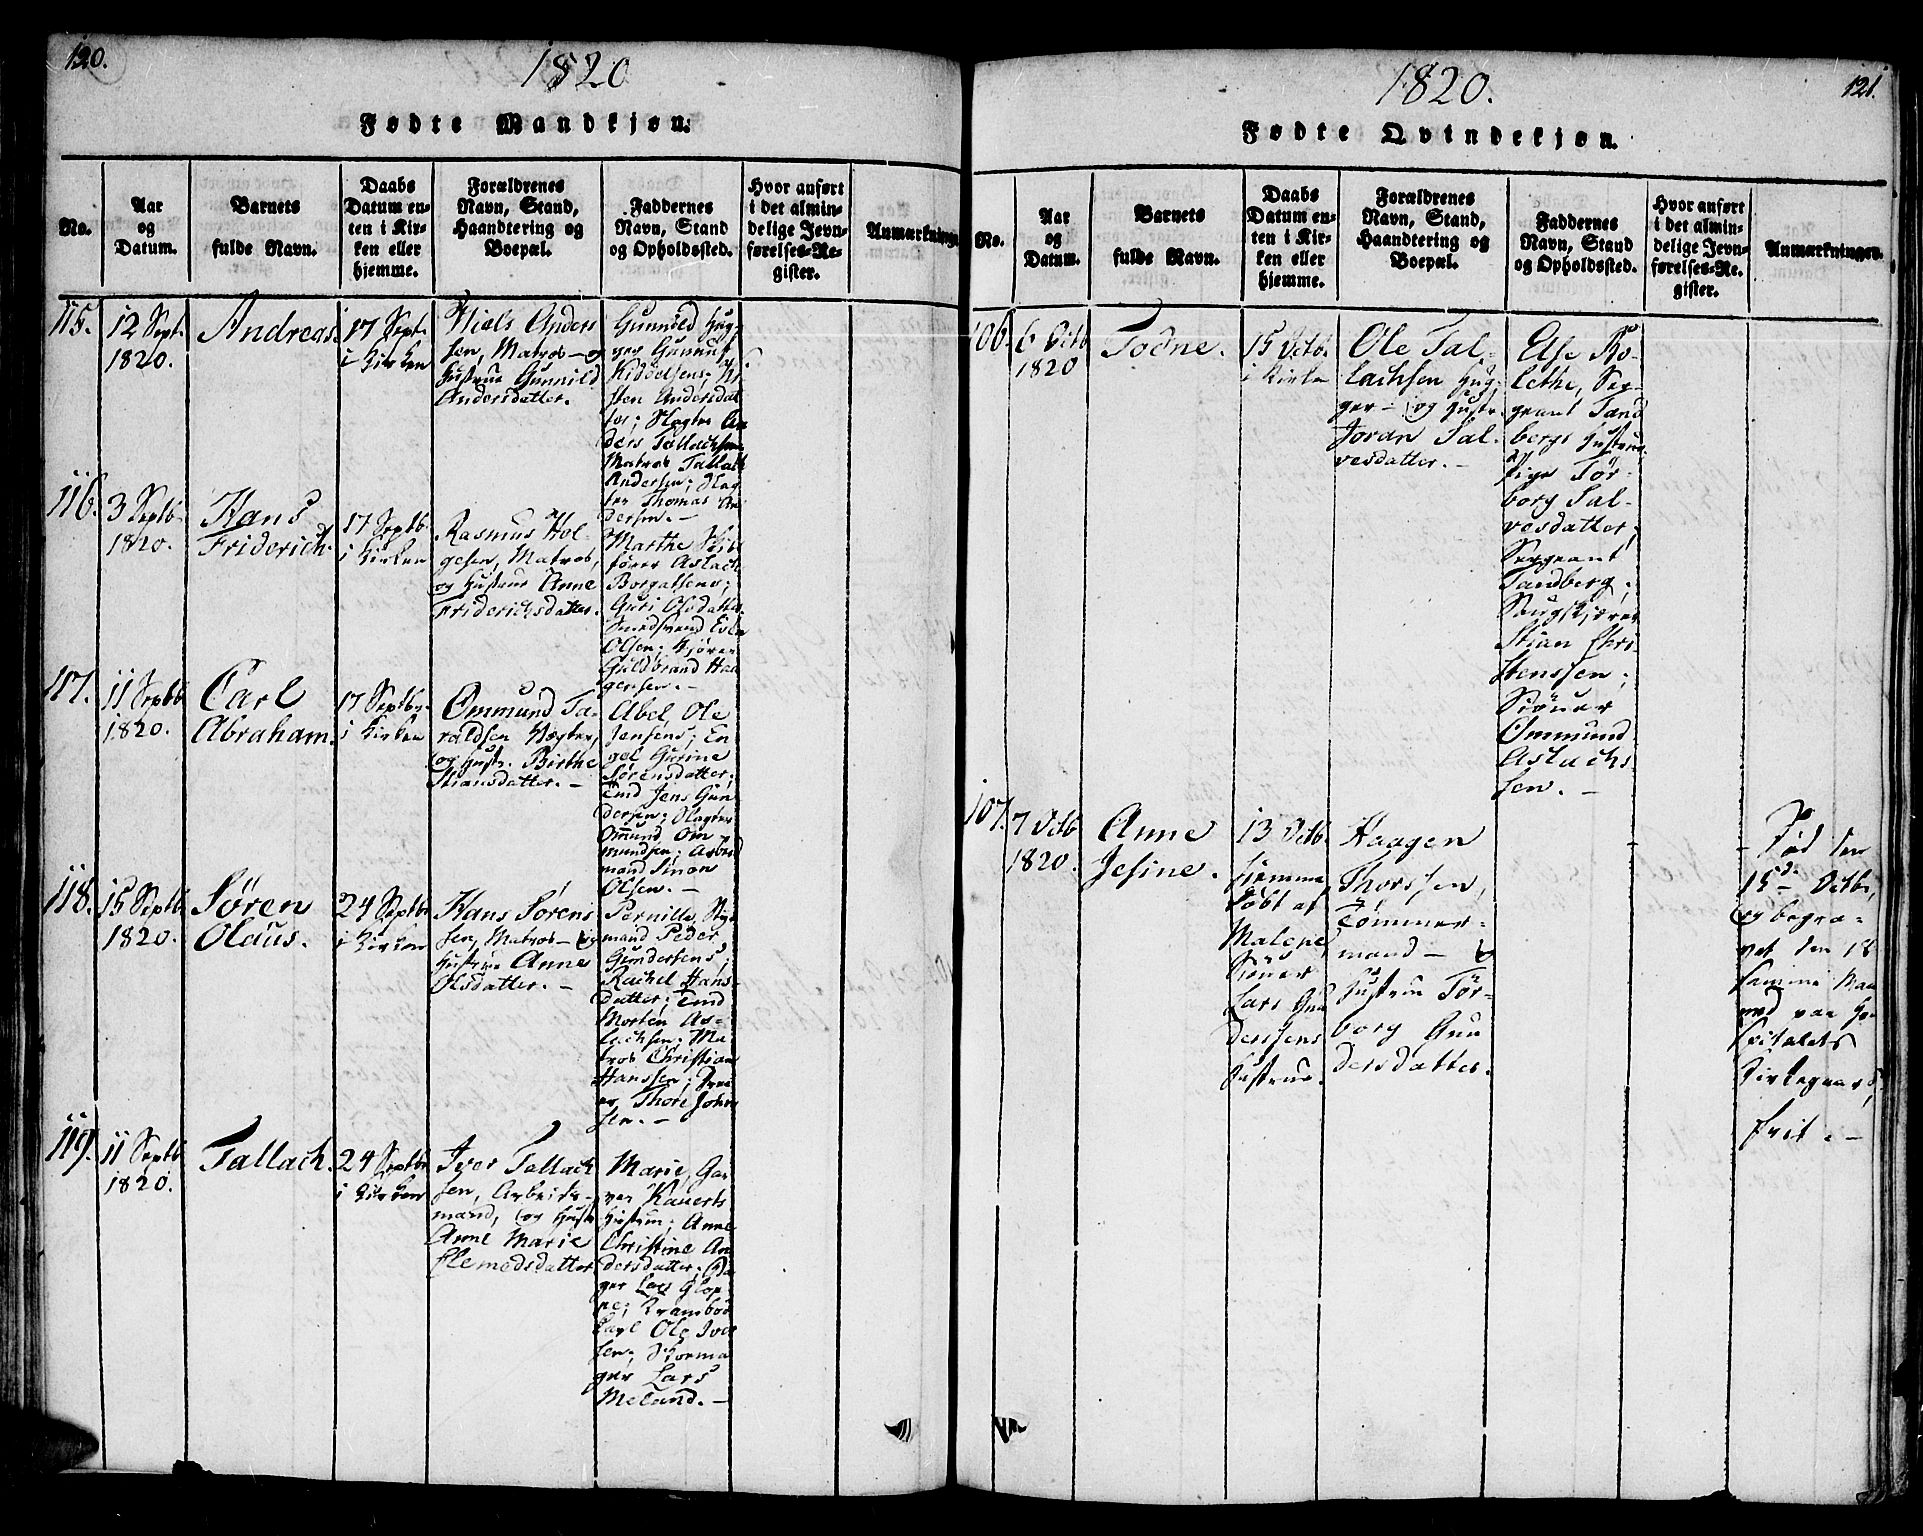 120.
1820
Fødte Mandkjøn.
No.
Aar
og
Datum.
Barnets
fulde Navn.
Daabs
Datum en-
ten i Kir-
ken eller
hjemme.
Forældrenes
Navn, Stand,
Haandtering og
Boepæl.
Faddernes
Navn, Stand
og Opholdssted.
Hvor anført
i det almin-
delige Jevn-
førelses-Re-
gister.
Anmærkninge
115.
12 Sept.
1820.
Andreas
17 Sept.
i Kirken
Niels Anders
sen, Matros – og
Hustrue Gunnild
Andersdatter.
Gunnild
Gunnuf
Andersdat
ter; Slagter An
ders Tallachsen
Matros Tallak
Andersen; Slag
ter Thomas An
dersen. –
116.
3 Septb.
1820.
Hans
Friderich
17 Septb.
i Kirken
Rasmus Hol-
gersen, Matros,
og Hustrue Anne
Friderichsdatter.
Marthe
Aslach
Guri Olsdatter
Olsen;
Guldbrand Haa
gensen. –
117.
11 Septb
1820.
Carl
Abraham.
17 Septbr.
i Kirken
Ommund Ta-
raldsen Vægter,
og Hustr. Birthe
Stiansdatter. –
Abel, Ole
Jensens; En
gel Gurine
Sørensdatter;
Jens Gun
dersen; Slagter
Ommund Om
mundsen; Arbeid
mand Simon
Olsen. –
118.
15 Septb.
1820.
Søren
Olaus.
24 Septbr
i Kirken
Hans Sørens
sen, Matros – og
Hustrue Anne
Olsdatter. –
Pernille, Sty
mand Peder
Gundersens;
Rachel Hans-
datter;
Morten As-
lachsen; Ma-
tros Christian
Hanssen;
Thore John
sen. –
119.
11 Septb
1820.
Tallach.
24 Septbr
i Kirken
Iver Tallach
sen, Arbeids-
mand, og Hustr
Anne Marie
Clemedsdatter
Marie, Gar
ver Kauerts
Hustrue; Anne
Christine An
dersdatter;
ger Lars Glop-
pe;
Carl Ole Iver
sen; Skoma
ger Lars
Meland. –
121.
1820.
Fødte Qvindekjøn.
No.
Aar
og
Datum.
Barnets
fulde Navn.
Daabs
Datum en-
ten i Kir-
ken eller
hjemme.
Forældrenes
Navn, Stand,
Haandtering og
Boepæl.
Faddernes
Navn, Stand
og Opholdssted.
Hvor anført
i det almin-
delige Jevn-
førelses-Re-
gister.
Anmærkninger.
106.
6 Octb
1820
Todne.
15 Octb.
i Kirken
Ole Tal-
lachsen
og Hustr.
Joran Sal-
vesdatter. –
Else
Ser-
geant Tand
bergs Hustrue
Pige Tør-
borg Sal-
vesdatter;
Sergeant
Tandberg;
Stian Chri
stenssen;
Ommund
Aslachs-
sen. –
107.
7 Octb.
1820.
Anne
Jesine.
13 Octb.
hjemme
døbt af
Malene,
Lars Gun
derssens
Hustrue.
Haagen
Thorssen,
Tømmer-
mand – og
Hustrue Tør-
borg Gun
dersdatter.
Død den
15de Octbr,
og begra-
vet den 18
samme Maa
ned paa Ho
spitalets
Kirkegaard,
frit. –